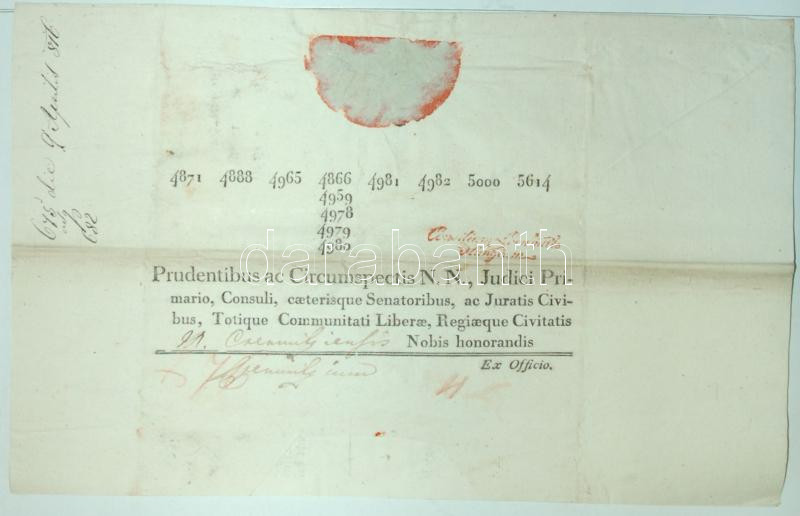 4871 4888 4965 4866 4981 4982 5000 5614
4959
4978
4979
4980
Prudentibus ac Circumspectis N. N., Judici Pri-
mario, Consuli, cæterisque Senatoribus, ac Juratis Civi-
bus, Totique Communitati Liberæ, Regiæque Civitatis
Cremniziensis Nobis honorandis
Ex Officio.
die 9 Aprilis
darabanth